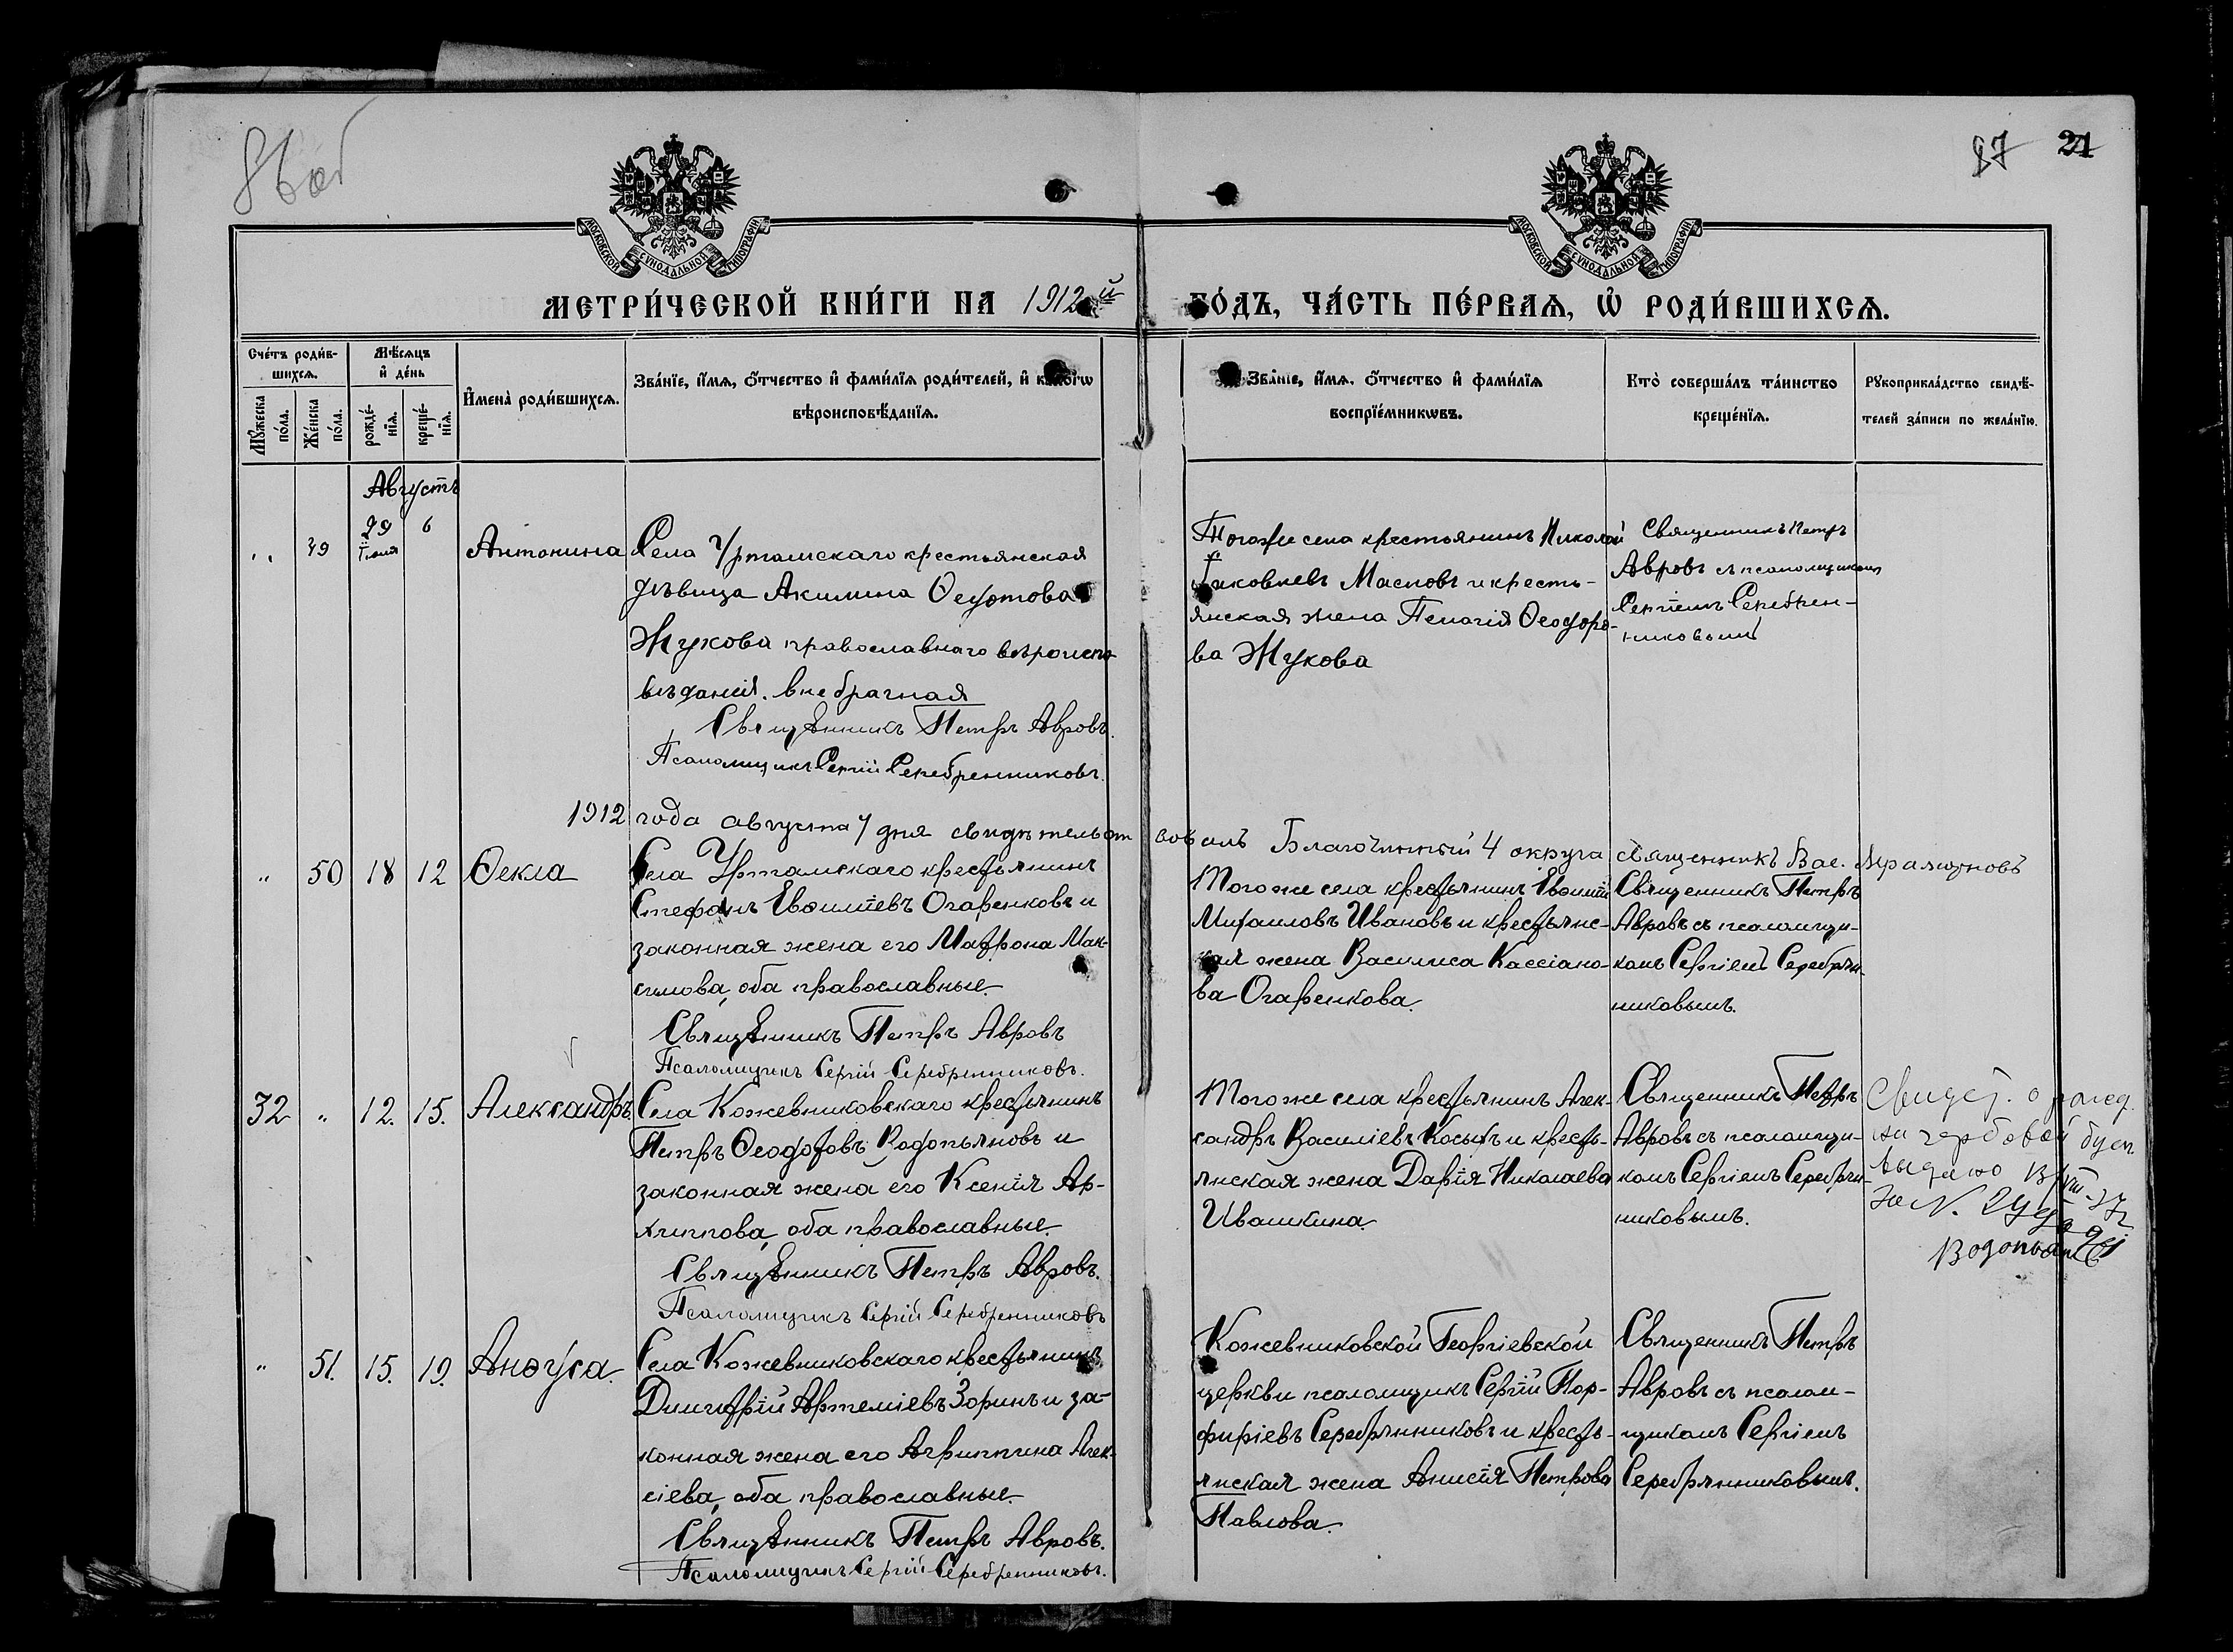 86 об
87 21
МОСКОВСКОЙ СѴНОДАЛЬНОЙ ТИПОГРАФІИ
МОСКОВСКОЙ СѴНОДАЛЬНОЙ ТИПОГРАФІИ
МЕТРИ́ЧЕСКОЙ КНИ́ГИ НА 1912 й ГО́ДЪ, ЧА́СТЬ ПЕ́РВАѦ, Ѡ҆ РОДИ́ВШИХСѦ.
Сче́тъ роди́в-
шихсѧ.
Мꙋ́жеска по́ла.
Же́нска по́ла.
Мѣ́сѧцъ
и҆ де́нь
рожде́-
нїѧ.
креще́-
нїѧ.
И҆мена̀ роди́вшихсѧ.
Зва́нїе, и҆́мѧ, ѻ҆́тчество и҆ фами́лїѧ роди́телей, и҆ како́гѡ
вѣроисповѣ́данїѧ.
Зва́нїе, и҆́мѧ, ѻ҆́тчество и҆ фами́лїѧ
воспрїе́мникѡвъ.
Кто̀ соверша́лъ та́инство
креще́нїѧ.
Рꙋкоприкла́дство свидѣ́-
телей за́писи по жела́нїю.
Августъ
" 49 29 Іюля 6 Антонина
Села Уртамскаго крестьянская
дѣвица Акилина Ѳедотова
Жукова православнаго вѣроиспо-
вѣданія. внебрачная
Священникъ Петръ Авровъ.
Псаломщикъ Сергій Серебренниковъ.
Того же села крестьянинъ Николай
Яковлевъ Масловъ и кресть-
янская жена Пелагія Ѳеодоро-
ва Жукова
Священникъ Петръ
Авровъ съ псаломщикомъ
Сергіемъ Серебрен-
никовымъ
1912 года августа 7 дня свидѣтельствовалъ Благочинный 4 округа священникъ Вас.
" 50 18 12 Ѳекла
Села Уртамскаго крестьянинъ
Стефанъ Евѳиміевъ Огаренковъ и
законная жена его Матрона Мак-
симова, оба православные.
Священникъ Петръ Авровъ
Псаломщикъ Сергій Серебренниковъ.
Того же села крестьянинъ Евѳимій
Михаиловъ Ивановъ и крестьянс-
кая жена Василиса Кассіано-
ва Огаренкова.
Священникъ Петръ
Авровъ съ псаломщи-
комъ Сергіемъ Серебрян-
никовымъ.
32 " 12. 15. Александръ
Села Кожевниковскаго крестьянинъ
Петръ Ѳеодотовъ Водопьяновъ и
законная жена его Ксенія Ар-
хиппова, оба православные.
Священникъ Петръ Авровъ.
Псаломщикъ Сергій Серебренниковъ
Того же села крестьянинъ Алек-
сандръ Василіевъ Косыхъ и кресть-
янская жена Дарія Николаева
Ивашкина.
Священникъ Петръ
Авровъ съ псаломщи-
комъ Сергіемъ Серебрян-
никовымъ.
Свидет. о рожд.
на гербовой бум
выдано
за N.
Водопьянов
" 51. 15. 19. Анѳуса.
Села Кожевниковскаго крестьянинъ
Димитрій Артеміевъ Зоринъ и за-
конная жена его Агриппина Алек-
сіева, оба православные.
Священникъ Петръ Авровъ.
Псаломщикъ Сергій Серебренниковъ.
Кожевниковской Георгіевской
церкви псаломщикъ Сергій Пор-
фиріевъ Серебрянниковъ и кресть-
янская жена Анисія Петрова
Павлова.
Священникъ Петръ
Авровъ съ псалом-
щикомъ Сергіемъ
Серебрянниковымъ.